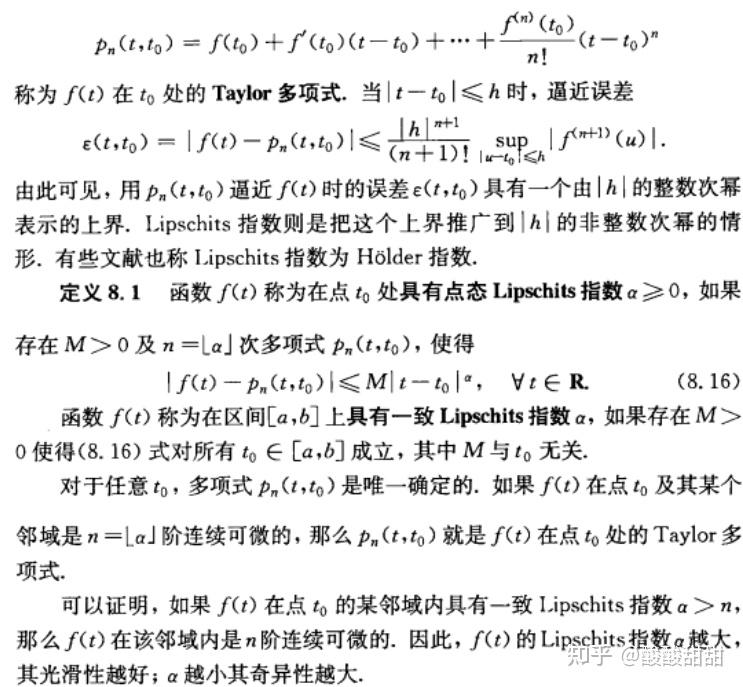 pₙ(t,t₀) = f(t₀) + f′(t₀)(t−t₀) + ⋯ + f⁽ⁿ⁾(t₀)/n! (t−t₀)ⁿ
称为 f(t) 在 t₀ 处的 Taylor 多项式. 当|t−t₀|≤h 时，逼近误差
ε(t,t₀) = |f(t)−pₙ(t,t₀)|≤ |h|ⁿ⁺¹/(n+1)! sup_{|u−t₀|≤h} |f⁽ⁿ⁺¹⁾(u)|.
由此可见，用 pₙ(t,t₀)逼近 f(t)时的误差 ε(t,t₀)具有一个由|h|的整数次幂
表示的上界. Lipschits 指数则是把这个上界推广到|h|的非整数次幂的情
形. 有些文献也称 Lipschits 指数为 Hölder 指数.
定义8.1 函数 f(t)称为在点 t₀ 处具有点态 Lipschits 指数 α≥0，如果
存在 M>0 及 n=⌊α⌋次多项式 pₙ(t,t₀)，使得
|f(t)−pₙ(t,t₀)|≤M|t−t₀|^α, ∀t∈R. (8.16)
函数 f(t)称为在区间[a,b]上具有一致 Lipschits 指数 α，如果存在 M>
0 使得(8.16)式对所有 t₀∈[a,b]成立，其中 M 与 t₀ 无关.
对于任意 t₀，多项式 pₙ(t,t₀)是唯一确定的. 如果 f(t)在点 t₀ 及其某个
邻域是 n=⌊α⌋阶连续可微的，那么 pₙ(t,t₀)就是 f(t)在点 t₀ 处的 Taylor 多
项式.
可以证明，如果 f(t)在点 t₀ 的某邻域内具有一致 Lipschits 指数 α>n，
那么 f(t)在该邻域内是 n 阶连续可微的. 因此，f(t)的 Lipschits 指数 α 越大，
其光滑性越好；α 越小其奇异性越大.
知乎 @酸酸甜甜